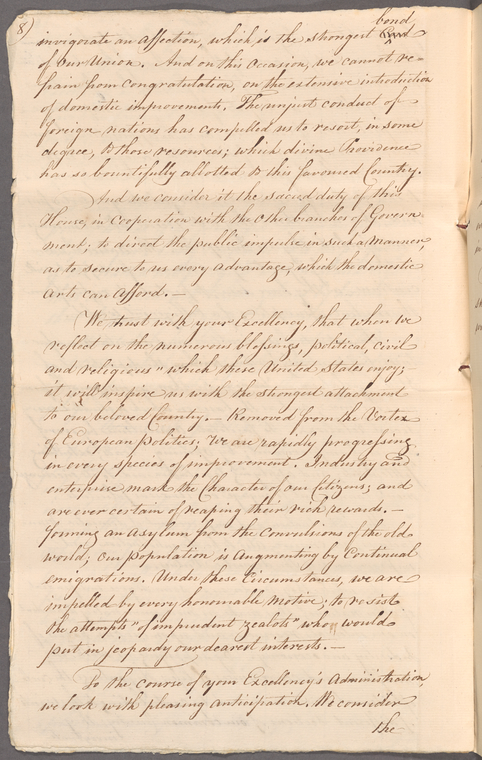 8)
bond
invigorate an Affection, which is the strongest
of our Union. And on this Occasion, we cannot re-
frain from congratulation, on the extensive introduction
of domestic improvements. The unjust conduct of
foreign nations has compelled us to resort, in some
degree, to those resources; which divine Providence
has so bountifully allotted to this favoured Country.
And we consider it the sacred duty of this
House, in Cooperation with the other branches of Govern
ment; to direct the public impulse in such a Manner
as to secure to us every advantage, which the domestic
arts can afford. —
We trust with your Excellency, that when we
reflect on the numerous blessings, political, civil
and religious "which these United States enjoy; —
it will inspire us with the strongest attachment
to our beloved Country. — Removed from the Vortex
of European politics; We are rapidly progressing
in every species of improvement. Industry and
enterprise mark the Character of our Citizens; and
are ever certain of reaping their rich rewards. —
forming an Asylum from the Convulsions of the old
world; our population is Augmenting by Continual
emigrations. Under these Circumstances, we are
impelled by every honourable Motive; to resist
the attempts "of imprudent zealots" who would
put in jeopardy our dearest interests. —
To the course of your Excellency's Administration,
we look with pleasing anticipation. We consider
the